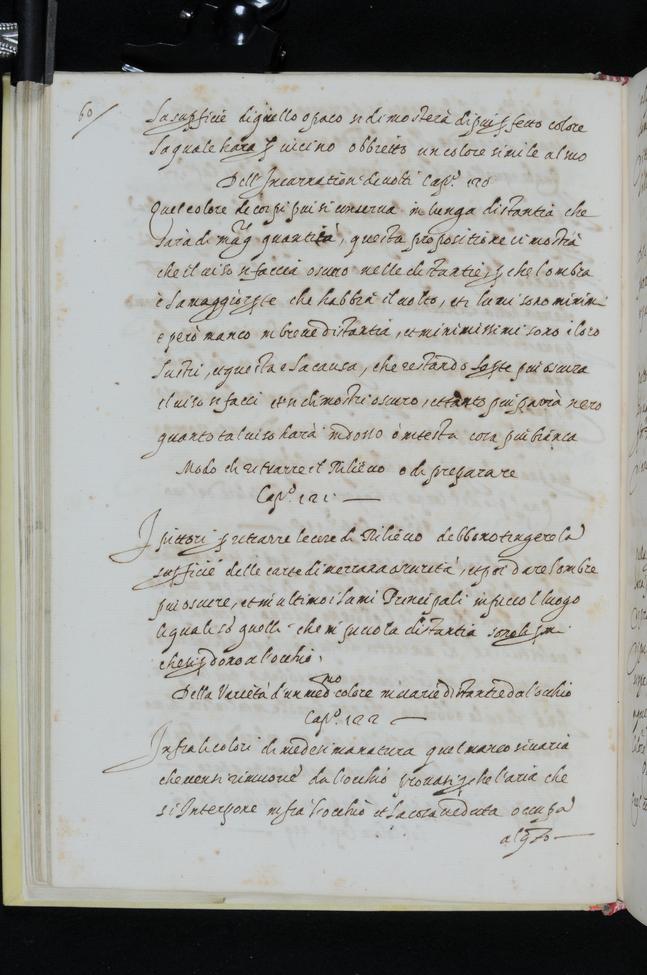 60
la supficie di q̃llo opaco si dimosterà di piu pfetto colore
la quale harà p uicino obbietto un colore simile al suo
Dell'Incarnatione de uolti Cap.º 120
Quel colore de corpi piu si conserva in lunga distantia che
sarà di magr quantità, questa propositione ci mostra
che il uiso si faccia oscuro nelle distantie, p che l'ombra
è la maggior pte che habbia il uolto, et i lumi sono minimi
e però manco in breue distantia, et minimissimi sono i loro
lustri, et questa e la causa, che restando la pte piu oscura
il uiso si facci et si dimostri oscuro, et tanto piu parrà nero
quanto tal uiso harà indosso ò in testa cosa piu bianca
Modo di ritrarre il Rilieuo o di preparare
Cap.º 121
I pittori p ritrarre le cose di Rilieuo debbono tingere la
supficie delle carte di mezzana oscurità, et poi dare l'ombre
piu oscure, et in ultimo i lumi Principali in piccol luogo
li quali só quelli che in piccola distantia sono li pmi
che si pdono al'occhio,
Della Varietà d'un medmo colore in uarie distantie dal'occhio
Cap.º 122
Infra li colori di medesima natura quel manco si uaria
che meno si rimuoue dal'occhio prouasi p che l'aria che
si Interpone infra l'occhio et la cosa ueduta occupa
alqto